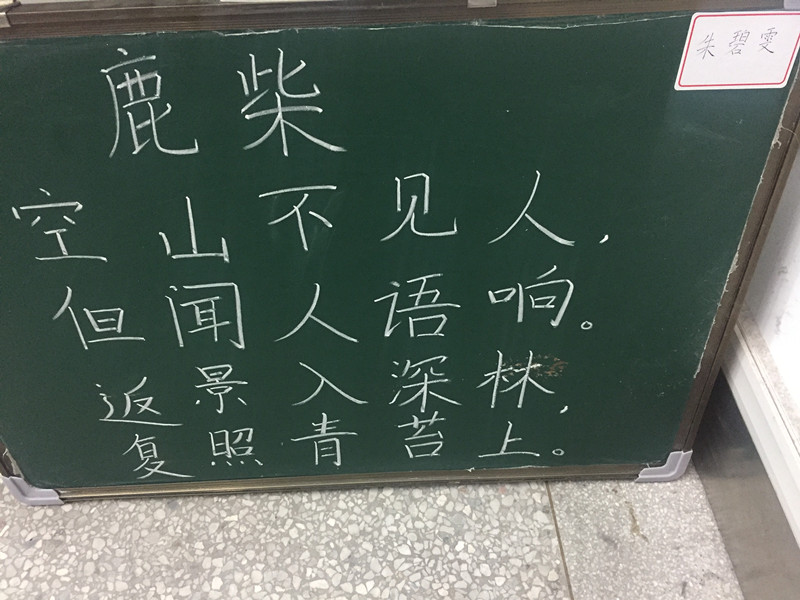 朱碧雯
鹿柴
空山不见人，
但闻人语响。
返景入深林，
复照青苔上。